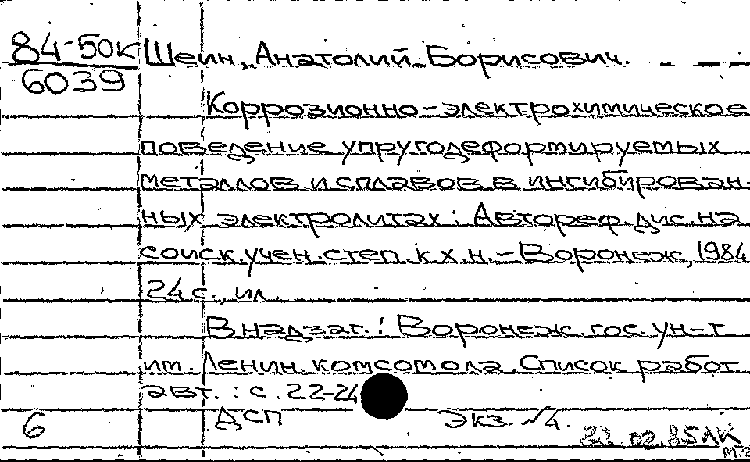 84-50К Шеин, Анатолий Борисович.
6039
Коррозионно-электрохимическое
поведение упругодеформируемых
металлов и сплавов в ингибирован-
ных электролитах: Автореф. дис. на
соиск. учен. степ. к.х.н. - Воронеж, 1984
24 с., ил.
В надзаг.: Воронеж. гос. ун-т
им. Ленин. комсомола. Список работ
авт.: с. 22-24
ДСП экз. №4.
6